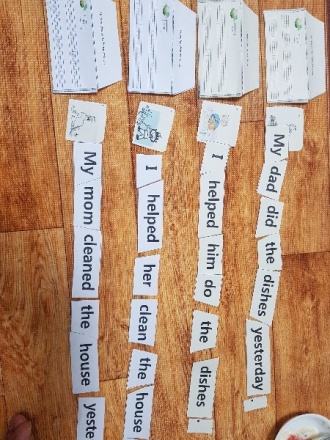 My dad did the dishes yesterday.
I helped him do the dishes.
My mom cleaned the house yeste
I helped her clean the house